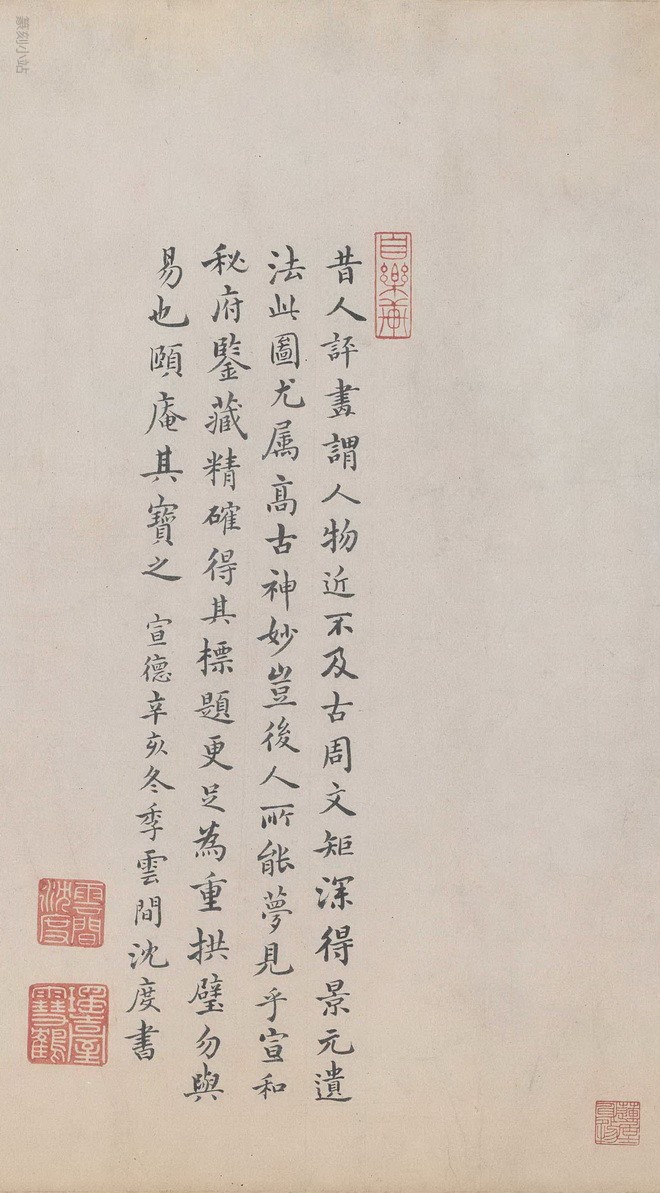 篆刻小站
自樂菴
昔人評畫謂人物近不及古周文矩深得景元遺
法此圖尤属高古神妙豈後人所能夢見乎宣和
秘府鑒藏精確得其標題更足為重拱璧勿與
易也頤庵其寶之 宣德辛亥冬季雲間沈度書
雲間沈度